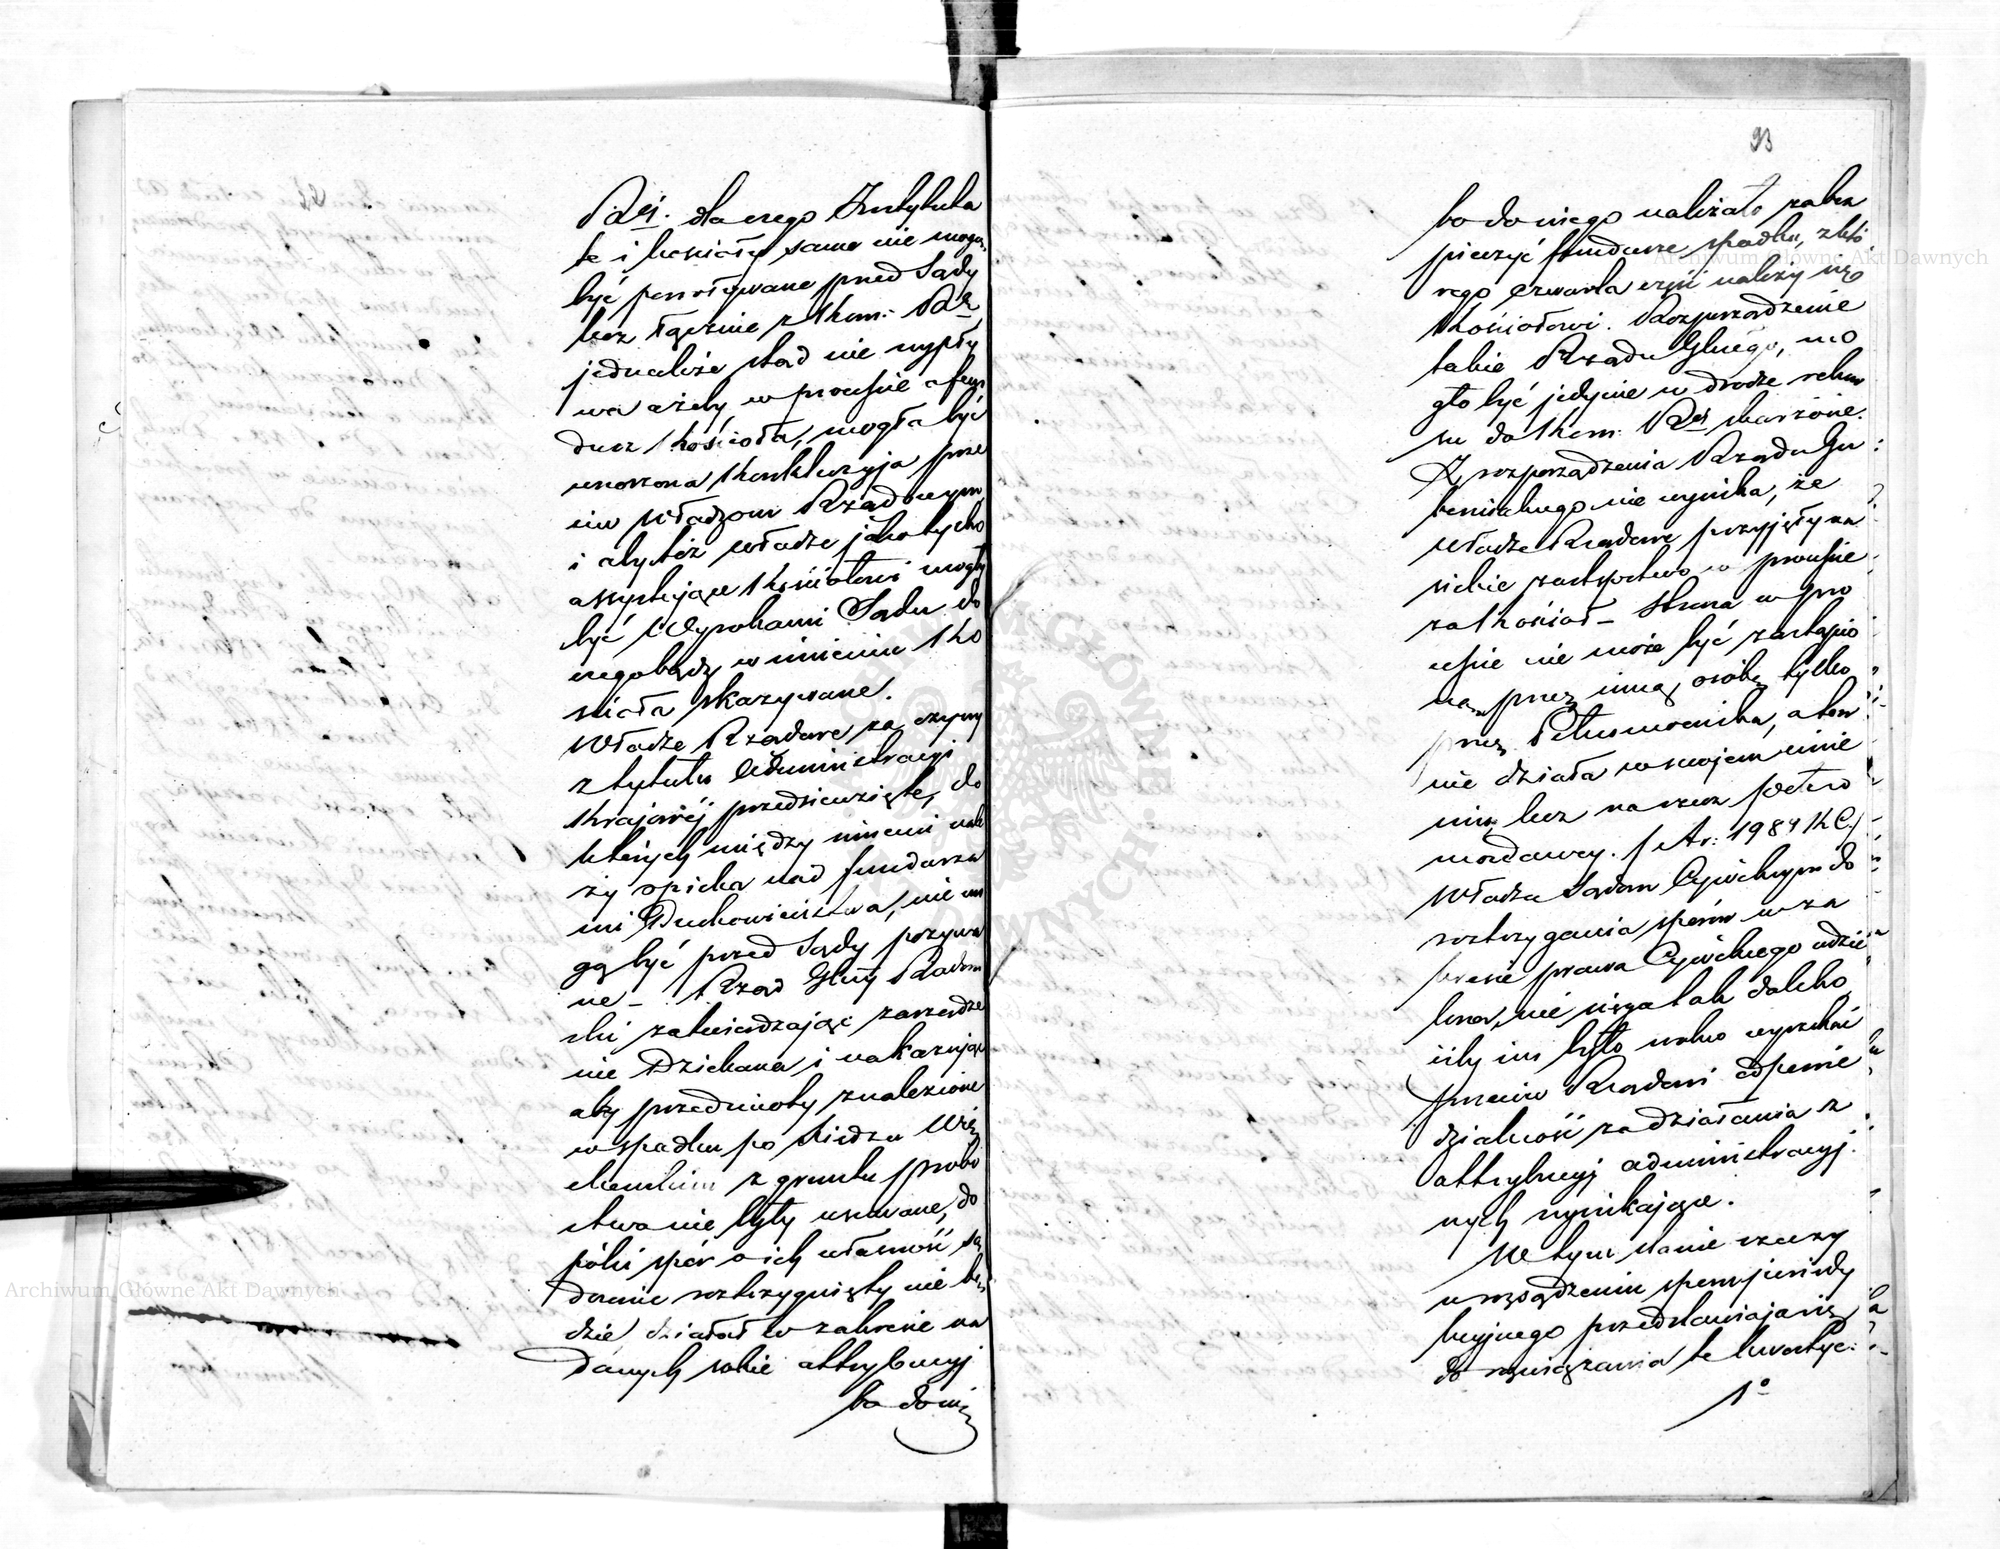 Rei. dla czego Instytuta
te i kościoły same nie mogą
być pozrywane przed Sądy
lecz łącznie z Kom: Rz
jednakże stąd nie wypły
wa ażeby w processie o fun
dusz Kościoła, mogła być
wnoszona Konkluzyja prze
ciw Władzom Rządowym
i aby też władze jako tylko
assystujące Kościołowi mogły
być Wyrokami Sądu do
czegobądź w imieniu Ko
ścioła skazywane.
Władze Rządowe za czyny
z tytułu Administracyi
Krajowéj przedsięwzięte, do
których między innemi nale
ży opieka nad fundusza
mi Duchowieństwa, nie mo
gą być przed Sądy pozywa
ne – Rząd Glny Radom
ski zatwierdzając zarządze
nie Dziekana i nakazując
aby przedmioty znalezione
w spadku po Księdzu
z gruntu probo
stwa nie były usuwane, do
póki spór o ich własność są
downie roztrzygnięty nie bę
dzie działał w zakresie na
danych sobie attrybucyj
bo do nie
93
bo do niego należało zabez
pieczyć fundusze spadku, z któ
rego czwarta część należy się
Kościołowi. Rozporządzenie
takie Rządu Glnego, mo
gło być jedynie w drodze rekur
su do Kom: Rei skarżone.
Z rozporządzenia Rządu Gu
bernialnego nie wynika, że
Władze Rządowe przyjęły na
siebie zastępstwo w processie
za Kościoł – Strona w pro
cessie nie może być zastąpio
ną przez inną osobę tylko
przez Pełnomocnika, a ten
nie działa w swojem imie
niu, lecz na rzecz pełno
mocdawcy. (Ar: 1984 KC)
Władza Sądom Cywilnym do
roztrzygania sporów w za
kresie prawa Cywilnego udzie
lona, nie sięga tak daleko
iżby im było wolno wyrzekać
przeciw Rządowi odpowie
dzialność za działania z
attrybucyj administracyj
nych wynikające.
W tym stanie rzeczy
w rozsądzeniu sporu
przedstawiają się
do rozwiązania te kwestye:
1o
Archiwum Główne Akt Dawnych
Archiwum Główne Akt Dawnych